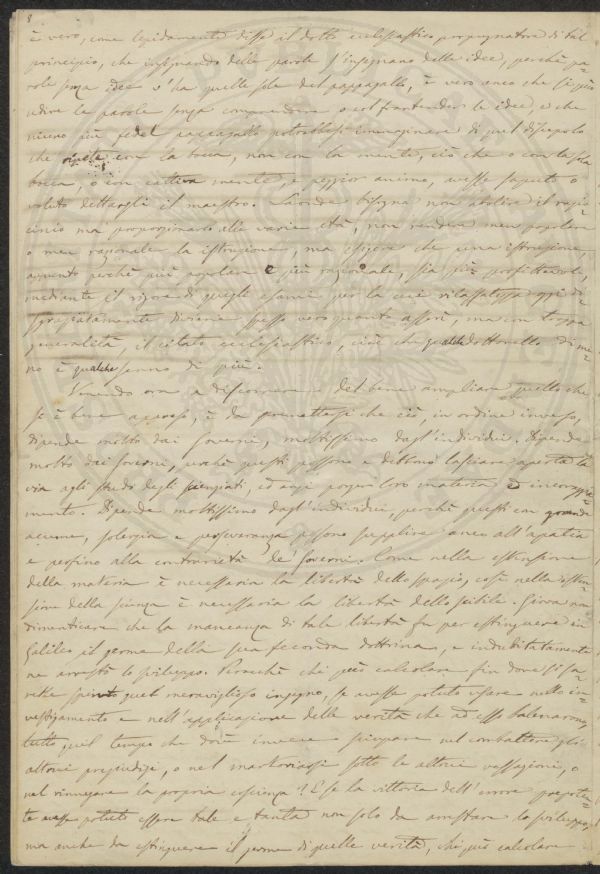 8
è vero, come lepidamente disse il dotto ecclesiastico propugnatore di tal
principio, che insegnando delle parole s'insegnano delle idee, perchè pa-
role senza idee v'ha quelle sole del pappagallo, è vero anco che si può
udire le parole senza comprendere o col frantendere le idee, e che
niuno più fedel pappagallo potrebbesi immaginare di quel discepolo
che ripete con la bocca, non con la mente, ciò che o con la sola
bocca, o con cattiva mente, e peggior animo, avesse saputo o
voluto dettargli il maestro. Laonde bisogna non abolire il razio-
cinio ma proporzionarlo alle varie età, non rendere men popolare
o men razionale la istruzione, ma esigere che una istruzione,
appunto perchè più popolare e più razionale, sia più profittevole,
mediante il rigore di quegli esami per la cui rilassatezza oggi di-
sgraziatamente diviene spesso vero quanto asserì, ma con troppa
generalità, il citato ecclesiastico, cioè che qualche dottorello di me-
no è qualche senno di più.
Venendo ora a discorrere del bene ampliare quello che
si è bene appreso, è da premettersi che ciò, in ordine inverso,
dipende molto dai Governi, moltissimo dagl'individui. Dipende
molto dai Governi, perchè questi possono e debbono lasciare aperta la
via agli studi degli scienziati, ed anzi porger loro materia e incoraggia-
mento. Dipende moltissimo dagl'individui, perchè questi con grande
acume, solerzia e perseveranza possono supplire anco all'apatia
e persino alla contrarietà de' Governi. Come nella estensione
della materia è necessaria la libertà dello spazio, così nella esten-
sione della scienza è necessaria la libertà dello scibile. Giova non
dimenticare che la mancanza di tale libertà fu per estinguere in
Galileo il germe della sua feconda dottrina, e indubitatamente
ne arrestò lo sviluppo. Perocchè chi può calcolare fin dove si sa-
rebbe spinto quel meraviglioso ingegno, se avesse potuto usare nello in-
vestigamento e nell'applicazione delle verità che ad esso balenarono,
tutto quel tempo che dovè invece sciupare nel combattere gli
altrui pregiudizi, o nel martoriarsi sotto le altrui vessazioni, o
nel rinnegare la propria coscienza? E se la vittoria dell'errore prepoten-
te avesse potuto essere tale e tanta non solo da arrestare lo sviluppo,
ma anche da estinguere il germe di quelle verità, chi può calcolare